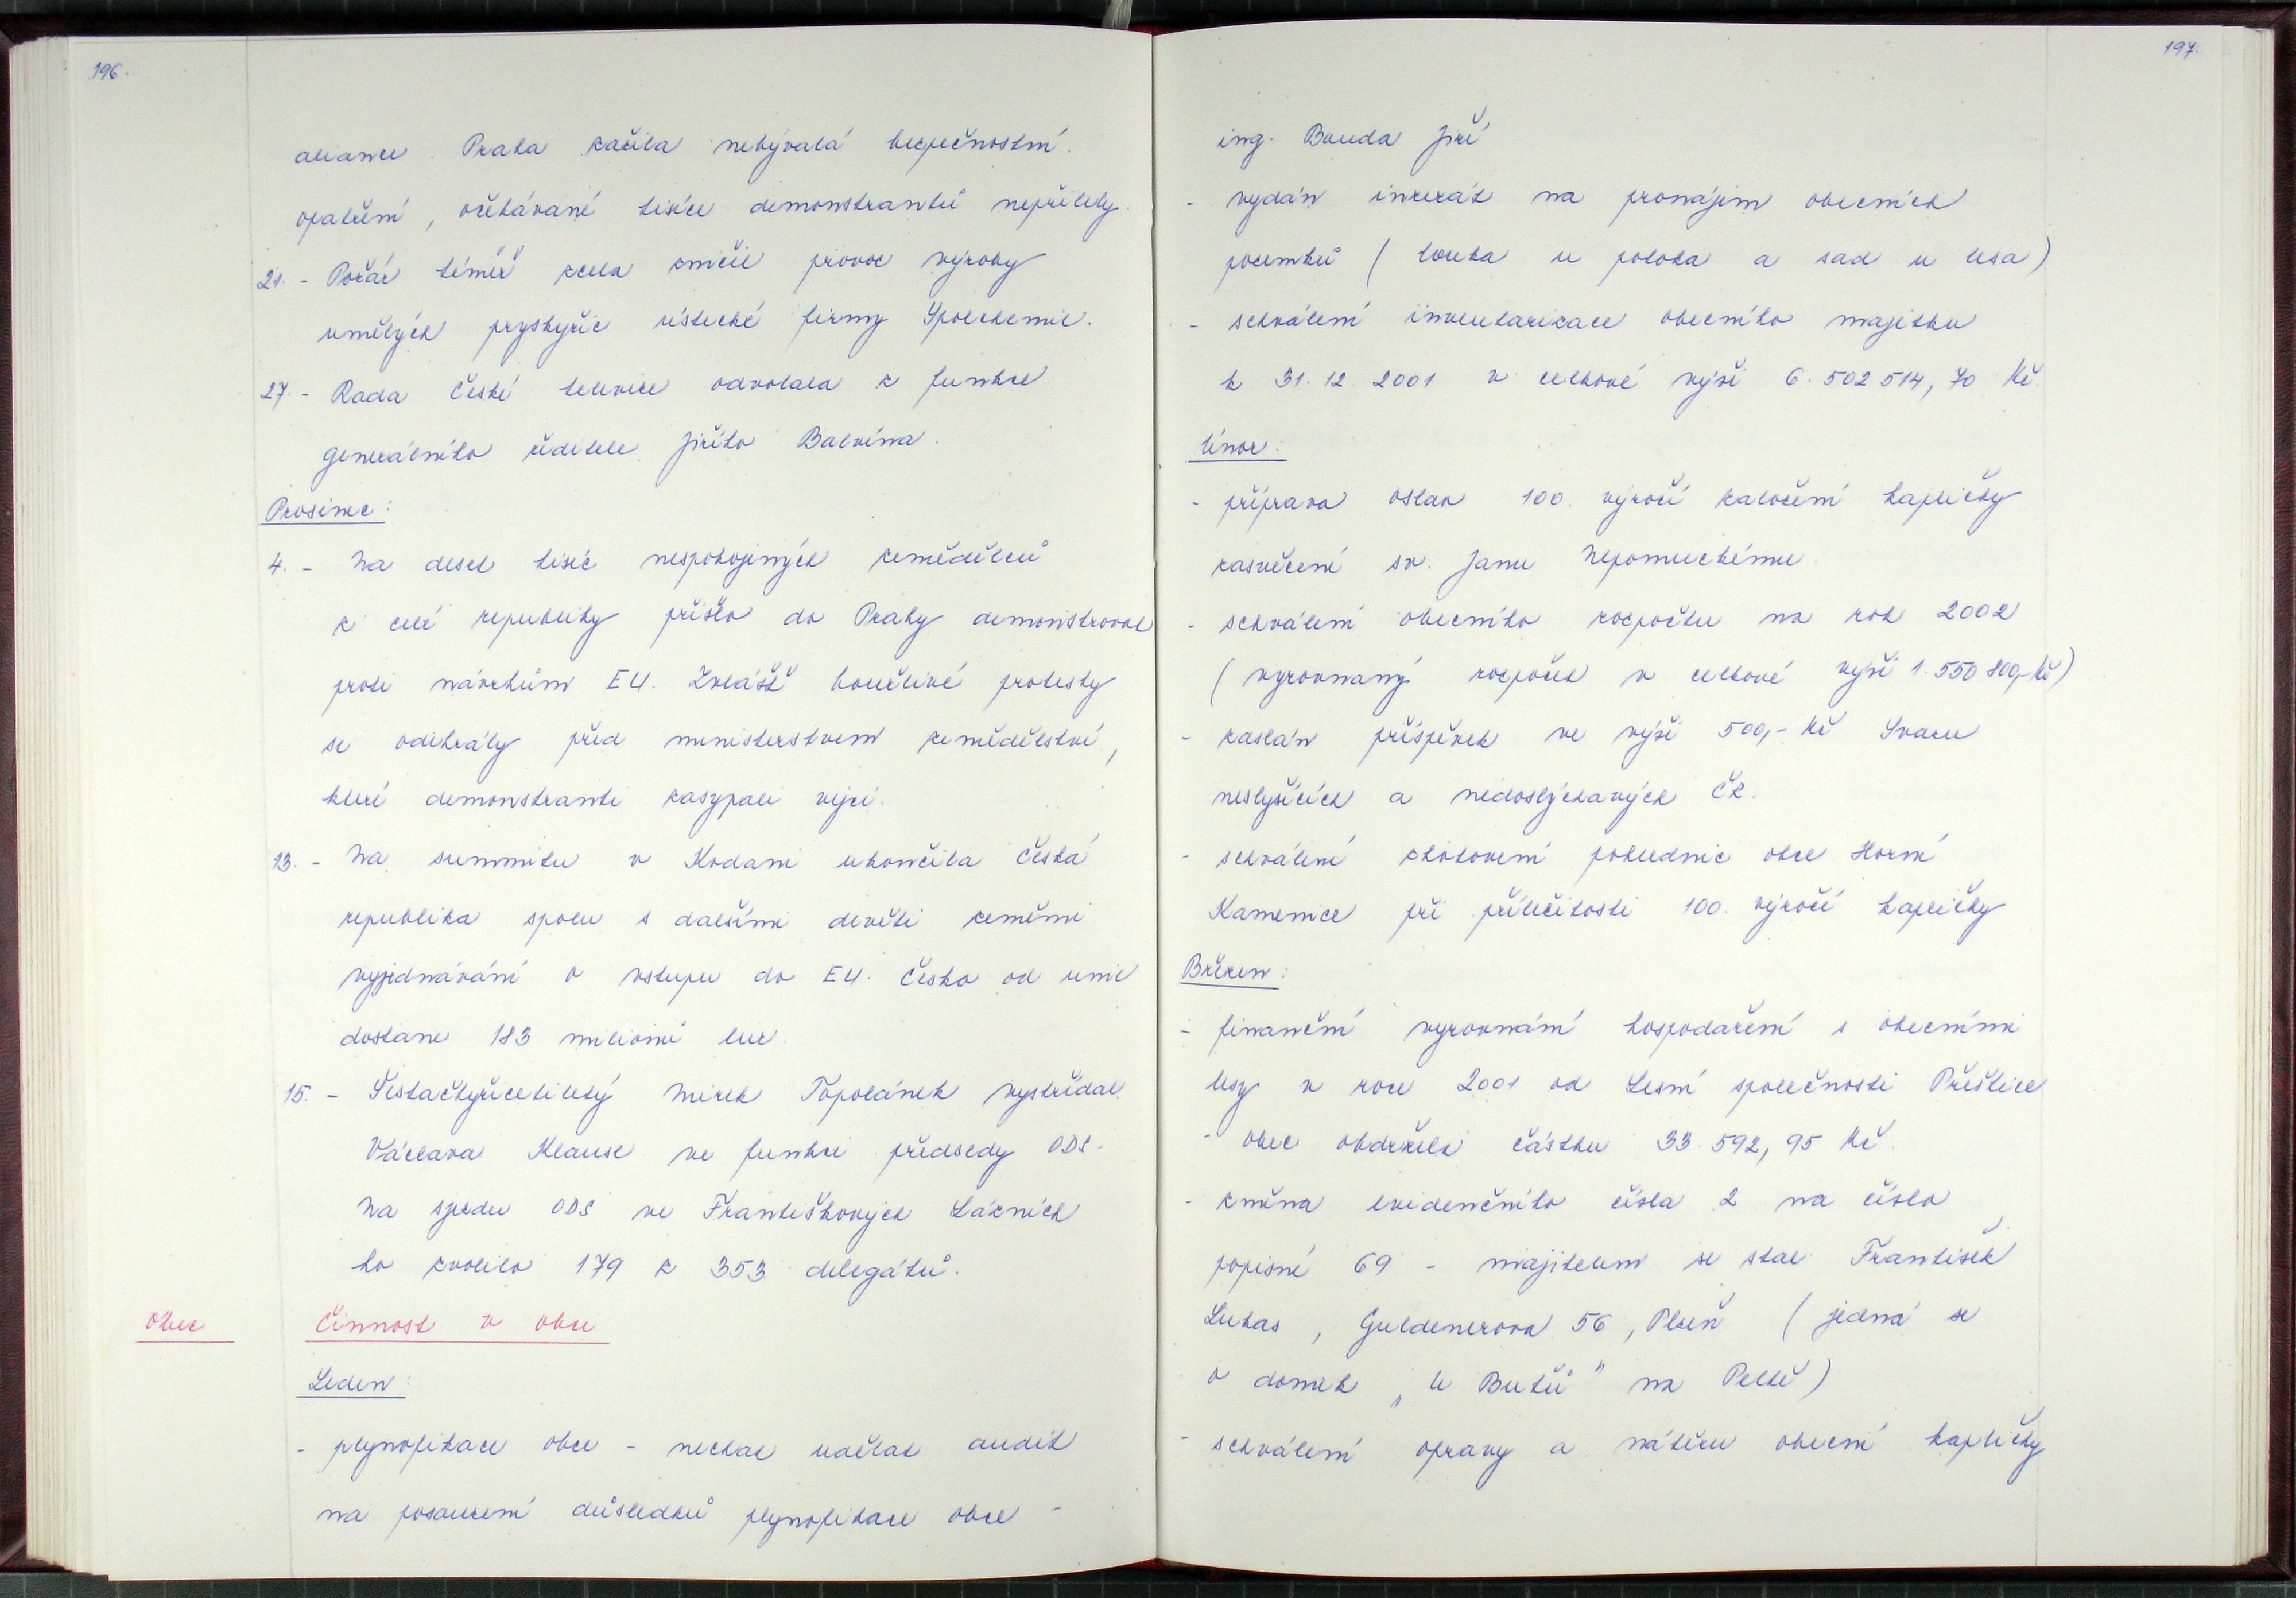 196.
aliance. Praha zažila nebývalá bezpečnostní
opatření, očekávané tisíce demonstrantů nepřišly.
21. - Požár téměř zcela zničil provoz výroby
umělých pryskyřic ústecké firmy Spolchemie.
27. - Rada České televize odvolala z funkce
generálního ředitele Jiřího Balvína.
Prosinec:
4. - Na deset tisíc nespokojených zemědělců
z celé republiky přišlo do Prahy demonstrovat
proti návrhům EU. Zvlášť bouřlivé protesty
se odehrály před ministerstvem zemědělství,
které demonstranti zasypali vejci.
13. - Na summitu v Kodani ukončila Česká
republika spolu s dalšími devíti zeměmi
vyjednávání o vstupu do EU. Česko od unie
dostane 183 milionů eur.
15. - Šestačtyřicetiletý Mirek Topolánek vystřídal
Václava Klause ve funkci předsedy ODS.
Na sjezdu ODS ve Františkových Lázních
ho zvolilo 179 z 353 delegátů.
Obec Činnost v obci
Leden:
- plynofikace obce - nechat udělat audit
na posouzení důsledků plynofikace obce -
197.
ing. Bouda Jiří
- vydán inzerát na pronájem obecních
pozemků (louka u potoka a sad u lesa)
- schválení inventarizace obecního majetku
k 31.12. 2001 v celkové výši 6.502 514,70 Kč.
Únor:
- příprava oslav 100. výročí založení kapličky
zasvěcené sv. Janu Nepomuckému.
- schválení obecního rozpočtu na rok 2002
(vyrovnaný rozpočet v celkové výši 1.550 800,-Kč)
- zaslán příspěvek ve výši 500,- Kč Svazu
neslyšících a nedoslýchavých ČR.
- schválení zhotovení pohlednic obce Horní
Kamenice při příležitosti 100. výročí kapličky
Březen:
- finanční vyrovnání hospodaření s obecními
lesy v roce 2001 od Lesní společnosti Přeštice
- obec obdržela částku 33.592,95 Kč.
- změna evidenčního čísla 2 na číslo
popisné 69 - majitelem se stal František
Lukas, Guldenerova 56, Plzeň (jedná se
o domek „U Buků" na Pelké)
- schválení opravy a nátěru obecní kapličky